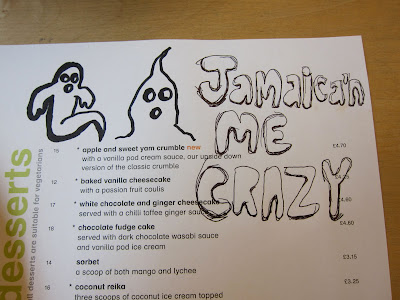 Jamaica'n
ME
CRAZY
desserts
all desserts are suitable for vegetarians
15 * apple and sweet yam crumble new £4.70
with a vanilla pod cream sauce, our upside down
version of the classic crumble
12 * baked vanilla cheesecake
with a passion fruit coulis
17 * white chocolate and ginger cheesecake
served with a chilli toffee ginger sauce
19 * chocolate fudge cake £4.60
served with dark chocolate wasabi sauce
and vanilla pod ice cream
14 sorbet £3.15
a scoop of both mango and lychee
16 * coconut reika £3.25
three scoops of coconut ice cream topped